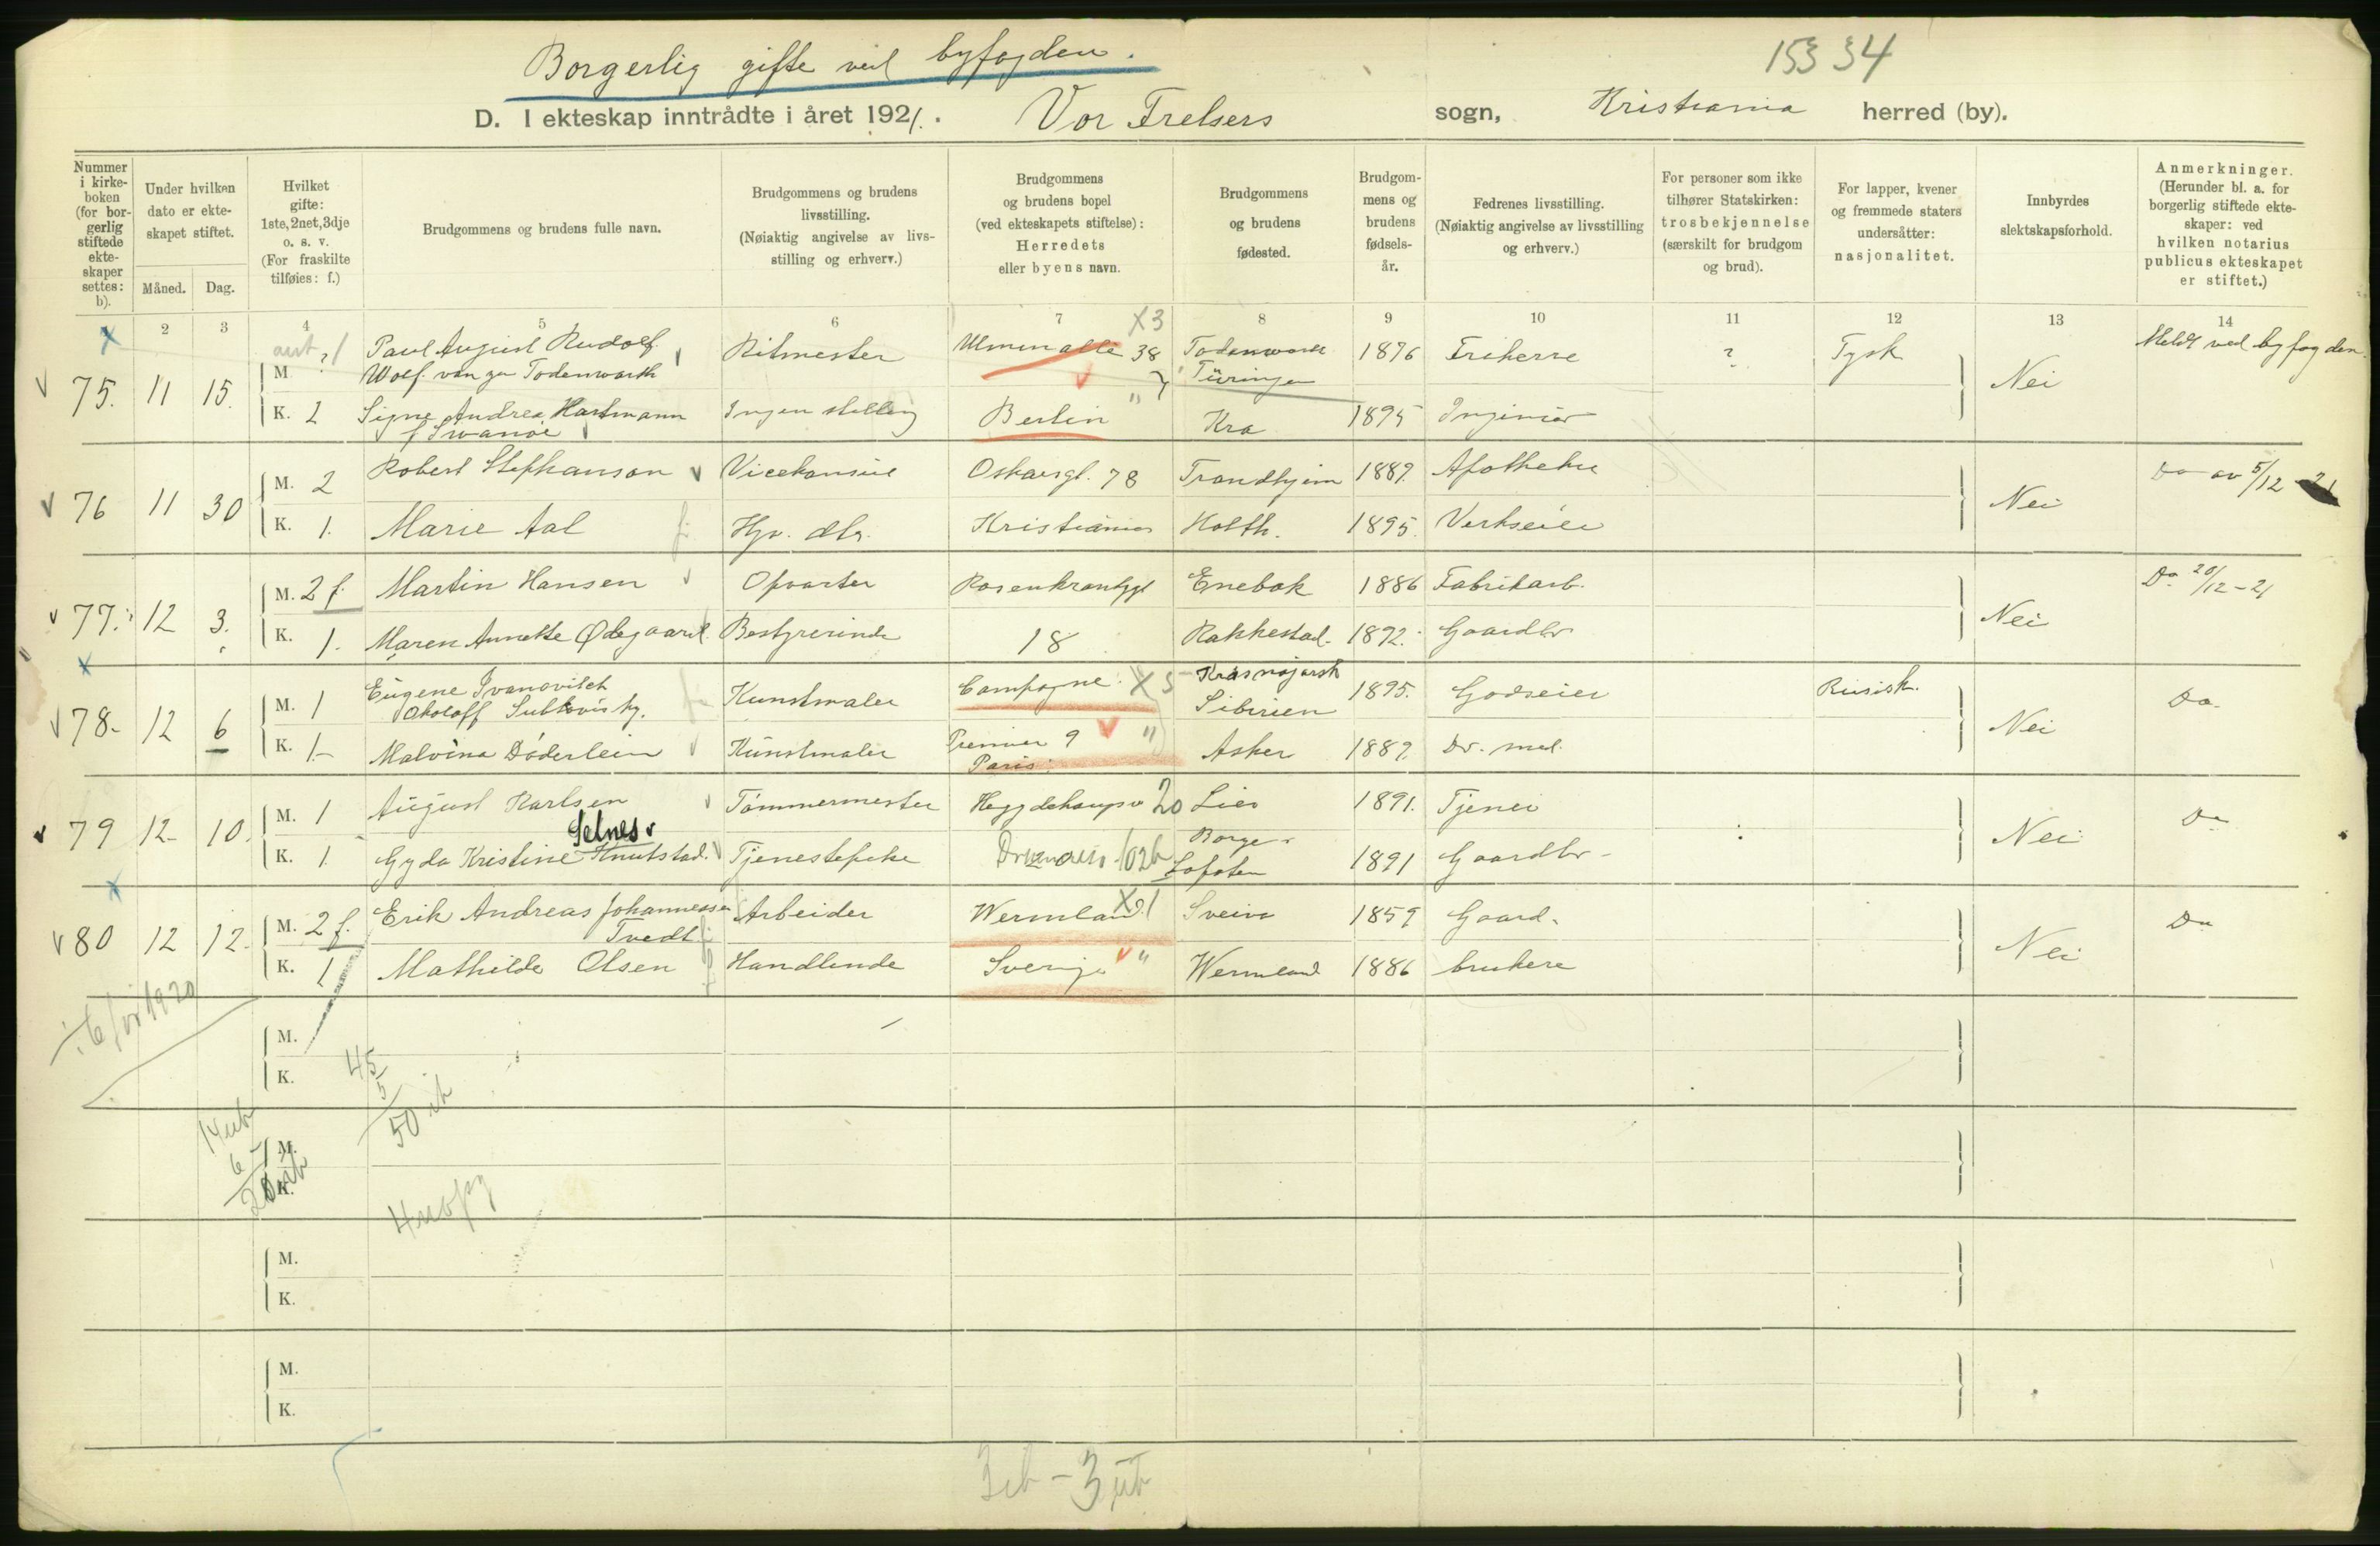 Borgerlig gifte ved byfogden.
15334
D. I ekteskap inntrådte i året 1921. Vor Frelsers sogn, Kristiania herred (by).
Nummer i kirke-boken (for bor-gerlig stiftede ekte-skaper settes: b).
Under hvilken dato er ekte-skapet stiftet.
Måned. Dag.
Hvilket gifte: 1ste, 2net, 3dje o. s. v. (For fraskilte tilføies: f.)
Brudgommens og brudens fulle navn.
Brudgommens og brudens livsstilling. (Nøiaktig angivelse av livs-stilling og erhverv.)
Brudgommens og brudens bopel (ved ekteskapets stiftelse): Herredets eller byens navn.
Brudgommens og brudens fødested.
Brudgom-mens og brudens fødsels-år.
Fedrenes livsstilling. (Nøiaktig angivelse av livsstilling og erhverv.)
For personer som ikke tilhører Statskirken: trosbekjennelse (særskilt for brudgom og brud).
For lapper, kvener og fremmede staters undersåtter: nasjonalitet.
Innbyrdes slektskapsforhold.
Anmerkninger. (Herunder bl. a. for borgerlig stiftede ekte-skaper: ved hvilken notarius publicus ekteskapet er stiftet.)
2 3 4 5 6 7 8 9 10 11 12 13 14
X X3
75. 11 15. M. ant. ? 1 Paul August Rudolf Wolf. von zu Todenwarth Ritmester Ulmenalle 38 Todenwarth Türingen 1876 Friherre ? Tysk Nei Meldt ved byfogden
K. 1 Signe Andrea Hartmann f. Swanøe Ingen stilling Berlin Kra 1895 Ingeniør
76 11 30 M. 2 Robert Stephanson Vicekonsul Oskarsgt. 78 Trondhjem 1889. Apotheker Nei Do av 5/12 21
K. 1. Marie Aal Hjv. dtr. Kristiania Holth. 1895. Verkseier
77. 12 3. M. 2 f. Martin Hansen Opvarter Rosenkrantzgt Enebak 1886 Fabrikarb. Nei Do 20/12-21
K. 1. Maren Annette Ødegaard. Bestyrerinde 18 Rakkestad. 1892. Gaardbr
X
78- 12 6 M. 1 Eugene Ivanovitch Okoloff Subkovisky. Kunstmaler Campagne X5 Krasnojarsk Sibirien 1895. Godseier Russisk. Nei Do.
K. 1- Malvina Döderlein Kunstmaler Premier 9 Paris. Asker 1889. Dr. med.
79 12- 10. M. 1 August Karlsen Tömmermester Heggdehaugsv 20 Lier 1891. Tjener Nei Do
K. 1. Gyda Kristine Knutstad. Selnes Tjenestepike 102b Borge Lofoten 1891 Gaardbr-
X
80 12 12- M. 2 f. Erik Andreas Johannessen Tvedt Arbeider Wermland X1 1859 Gaard- Nei Do
K. 1 Mathilde Olsen Handlende Sverige Wermland 1886 brukere
M.
K.
45
5
50 ib
M.
K.
14 ub
6
20 ub
M.
K.
M.
K.
3 ib - 3 ub